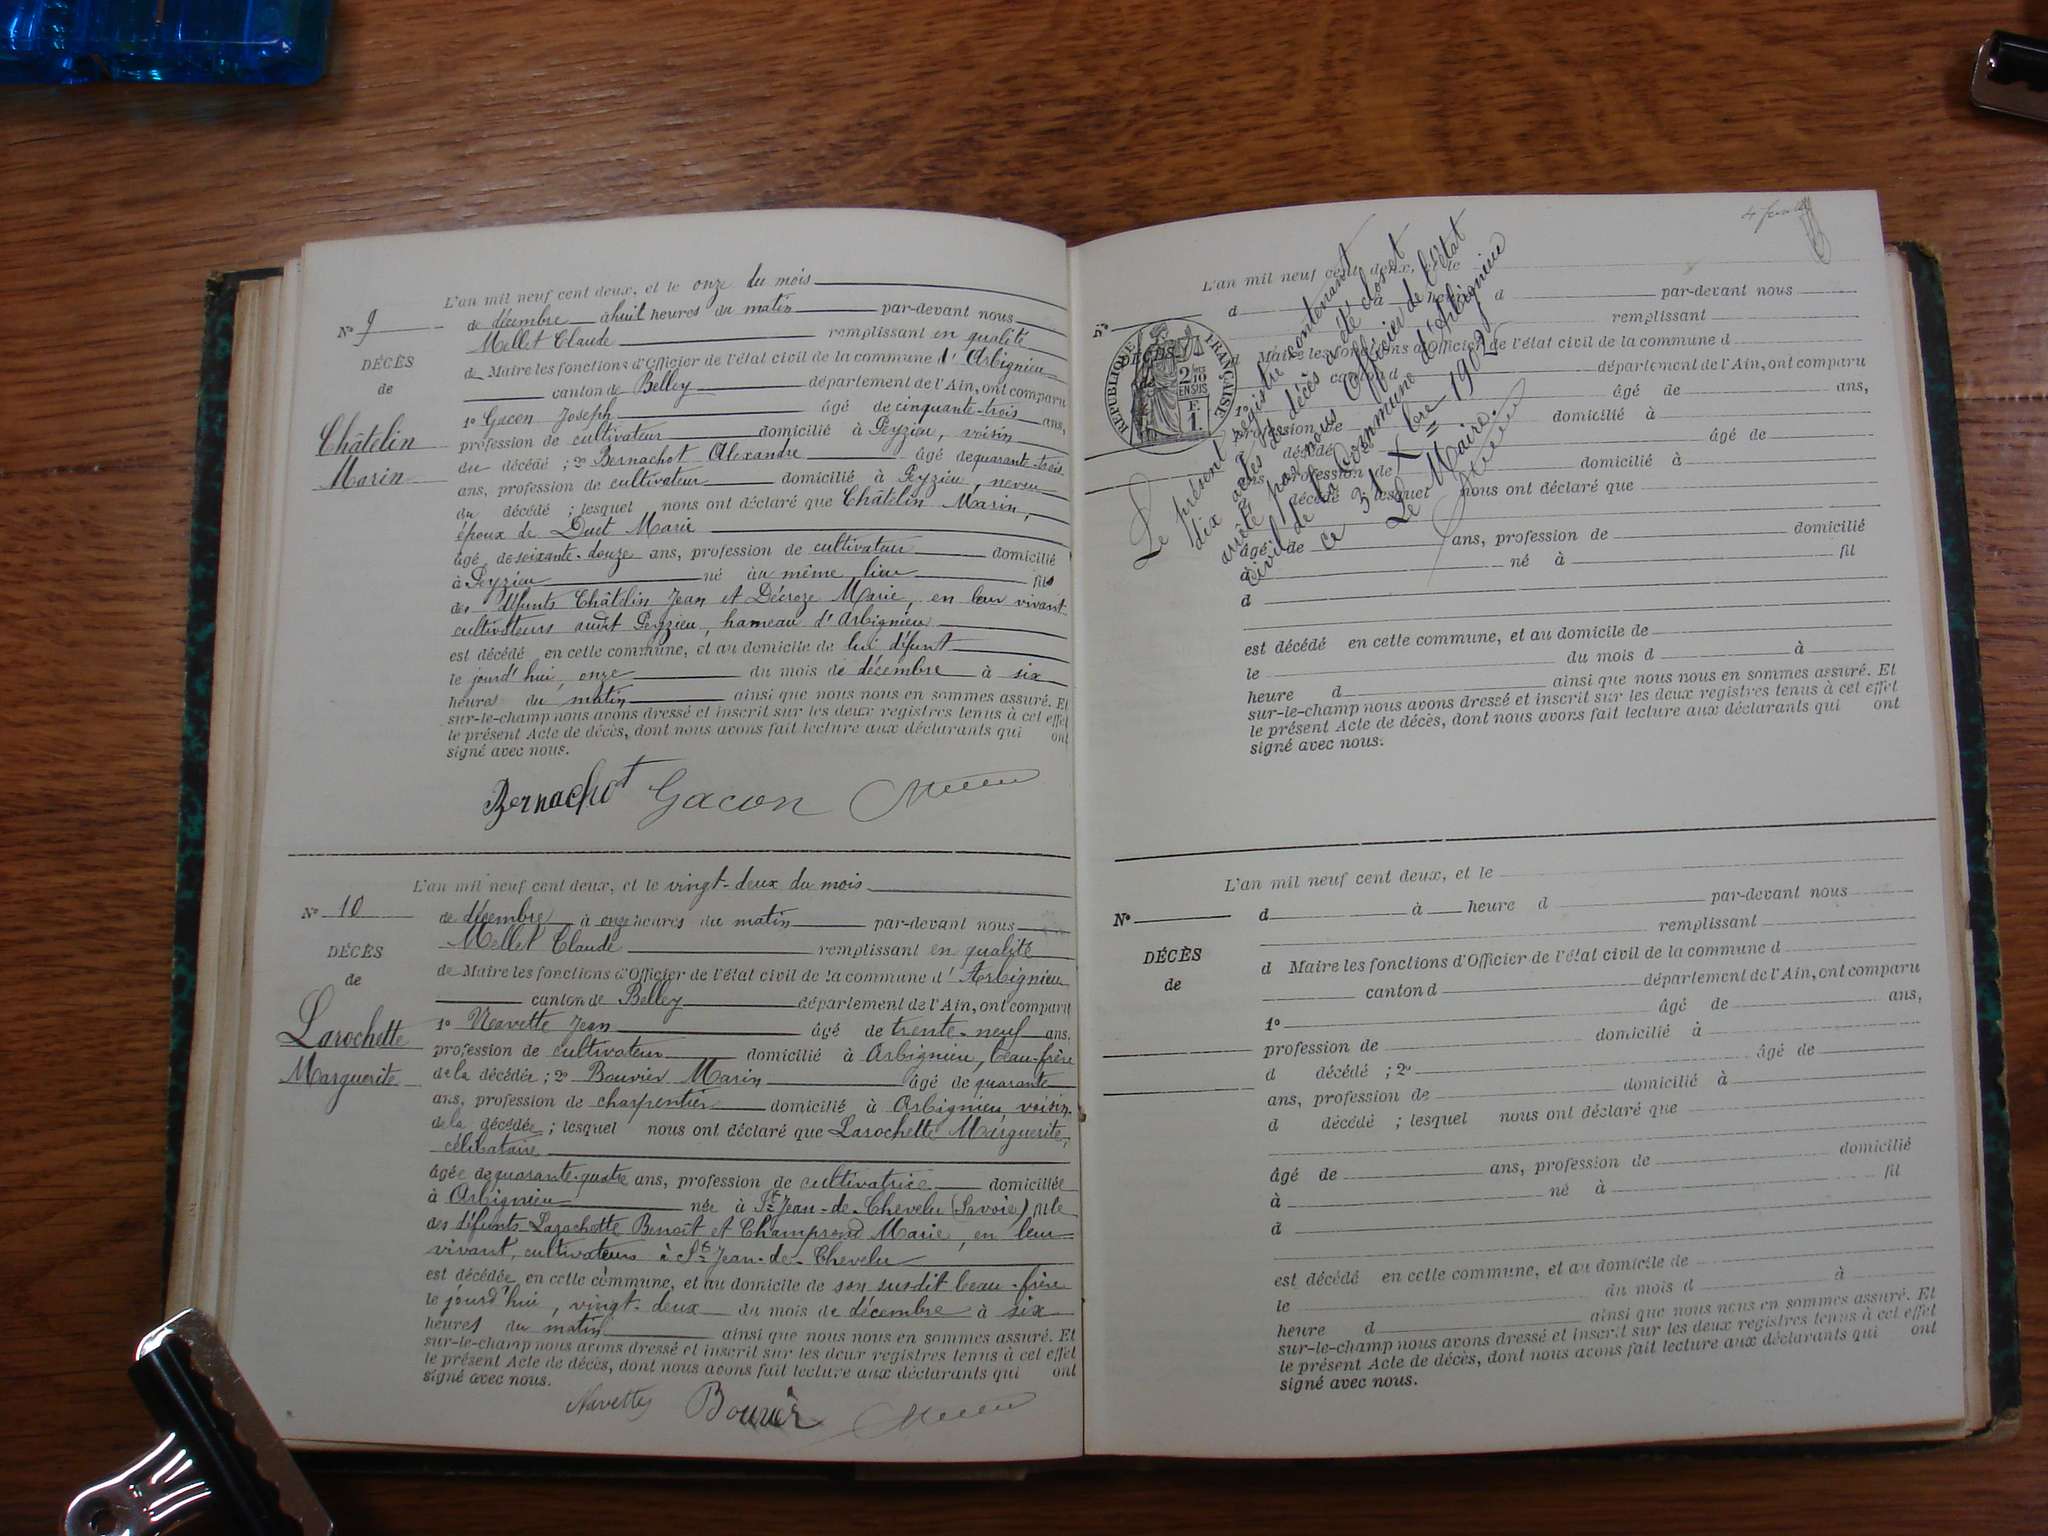 L'an mil neuf cent deux, et le onze du mois
N° 9
de décembre à huit heures du matin par-devant nous
Mellet Claude remplissant en qualité
DÉCÈS
de Maire les fonctions d'Officier de l'état civil de la commune d'Arbignieu
de
canton de Belley département de l'Ain, ont comparu
1° Gacon Joseph âgé de cinquante-trois ans,
Châtelin
profession de cultivateur domicilié à Peyzieu, voisin
Marin
du décédé ; 2° Bernachot Alexandre âgé de quarante-trois
ans, profession de cultivateur domicilié à Peyzieu, neveu
du décédé ; lesquel nous ont déclaré que Châtelin Marin,
époux de Duet Marie
âgé de soixante-douze ans, profession de cultivateur domicilié
à Peyzieu né au même lieu fils
des défunts Châtelin Jean et Décroze Marie, en leur vivant
cultivateurs audit Peyzieu, hameau d'Arbignieu
est décédé en cette commune, et au domicile de lui défunt
le jourd'hui, onze du mois de décembre à six
heures du matin ainsi que nous nous en sommes assuré. Et
sur-le-champ nous avons dressé et inscrit sur les deux registres tenus à cet effet
le présent Acte de décès, dont nous avons fait lecture aux déclarants qui ont
signé avec nous.
Bernachot Gacon
L'an mil neuf cent deux, et le vingt-deux du mois
N° 10
de décembre à onze heures du matin par-devant nous
Mellet Claude remplissant en qualité
DÉCÈS
de Maire les fonctions d'Officier de l'état civil de la commune d'Arbignieu
de
canton de Belley département de l'Ain, ont comparu
Larochette
1° Navette Jean âgé de trente-neuf ans,
profession de cultivateur domicilié à Arbignieu, beau-frère
Marguerite
de la décédée ; 2° Bouvier Marin âgé de quarante
ans, profession de charpentier domicilié à Arbignieu, voisin
de la décédée ; lesquel nous ont déclaré que Larochette Marguerite,
célibataire
âgée de quarante-quatre ans, profession de cultivatrice domiciliée
à Arbignieu née à St Jean-de-Chevelu (Savoie) fille
des défunts Larochette Benoît et Champrond Marie, en leur
vivant, cultivateurs à St Jean-de-Chevelu
est décédée en cette commune, et au domicile de son susdit beau-frère
le jourd'hui, vingt-deux du mois de décembre à six
heures du matin ainsi que nous nous en sommes assuré. Et
sur-le-champ nous avons dressé et inscrit sur les deux registres tenus à cet effet
le présent Acte de décès, dont nous avons fait lecture aux déclarants qui ont
signé avec nous.
Navette Bouvier
L'an mil neuf cent deux, et le
N°
d à heure d par-devant nous
remplissant
DÉCÈS
d Maire les fonctions d'Officier de l'état civil de la commune d
canton d département de l'Ain, ont comparu
1° âgé de ans,
profession de domicilié à
d décédé ; 2° âgé de
ans, profession de domicilié à
d décédé ; lesquel nous ont déclaré que
âgé de ans, profession de domicilié
à né à fil
d
est décédé en cette commune, et au domicile de
le du mois d à
heure d ainsi que nous nous en sommes assuré. Et
sur-le-champ nous avons dressé et inscrit sur les deux registres tenus à cet effet
le présent Acte de décès, dont nous avons fait lecture aux déclarants qui ont
signé avec nous.
RÉPUBLIQUE FRANÇAISE
2/10
EN SUS
F.
1.
Le présent registre contenant
dix actes de décès a été clos et
arrêté par nous Officier de l'état
civil de la commune d'Arbignieu
ce 31 Xbre 1902
Le Maire.
L'an mil neuf cent deux, et le
N°
d à heure d par-devant nous
remplissant
DÉCÈS
d Maire les fonctions d'Officier de l'état civil de la commune d
de
canton d département de l'Ain, ont comparu
1° âgé de ans,
profession de domicilié à
d décédé ; 2° âgé de
ans, profession de domicilié à
d décédé ; lesquel nous ont déclaré que
âgé de ans, profession de domicilié
à né à fil
d
est décédé en cette commune, et au domicile de
le du mois d à
heure d ainsi que nous nous en sommes assuré. Et
sur-le-champ nous avons dressé et inscrit sur les deux registres tenus à cet effet
le présent Acte de décès, dont nous avons fait lecture aux déclarants qui ont
signé avec nous.